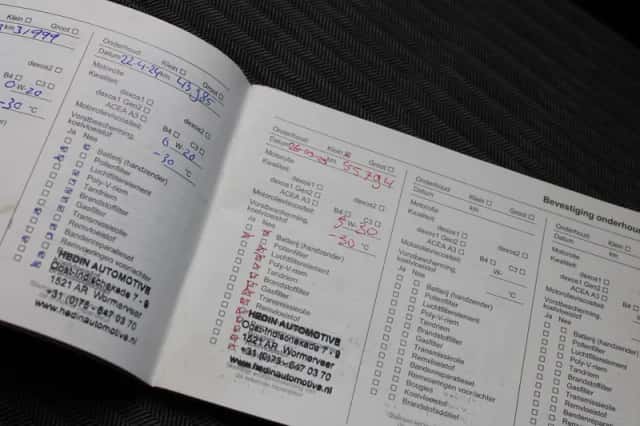 km 31999
dexos2
C3
W-20
-30 °C
Onderhoud Klein Groot
Datum 22-4-24 km 43.985
Motorolie
Kwaliteit:
dexos1 dexos2
dexos1 Gen2
ACEA A3 B4 C3
Motorolieviscositeit: 0 W- 20
Vorstbescherming, koelvloeistof -30 °C
Ja Nee
Batterij (handzender)
Pollenfilter
Luchtfilterelement
Poly-V-riem
Tandriem
Brandstoffilter
Gasfilter
Transmissieolie
Remvloeistof
Bandenreparatieset
Remvoeringen voor/achter
HEDIN AUTOMOTIVE
Oost-Indischekade 7 - 9
1521 AR Wormerveer
+31 (0)75 - 647 03 70
www.hedinautomotive.nl
Onderhoud: Klein Groot
Datum km 55.794
Motorolie
Kwaliteit:
dexos1 dexos2
dexos1 Gen2
ACEA A3 B4 C3
Motorolieviscositeit: W-
Vorstbescherming, koelvloeistof 30 °C
Ja Nee
Batterij (handzender)
Pollenfilter
Luchtfilterelement
Poly-V-riem
Tandriem
Brandstoffilter
Gasfilter
Transmissieolie
Remvloeistof
HEDIN AUTOMOTIVE
Oost-Indischekade 7 - 9
1521 AR Wormerveer
+31 (0)75 - 647 03 70
www.hedinautomotive.nl
Onderhoud: Klein Groot
Datum km
Motorolie
Kwaliteit:
dexos1 dexos2
dexos1 Gen2
ACEA A3 B4 C3
Motorolieviscositeit: W-
Vorstbescherming, koelvloeistof °C
Ja Nee
Batterij (handzender)
Pollenfilter
Luchtfilterelement
Poly-V-riem
Tandriem
Brandstoffilter
Gasfilter
Transmissieolie
Remvloeistof
Bandenreparatieset
Remvoeringen voor/achter
Bougies
Koelvloeistof
Brandstofadditief
Bevestiging onderhou
Onderhoud:
Datum
Motorolie
Kwaliteit:
dexos1
dexos1 Gen2
ACEA A3
Motorolieviscositeit:
Vorstbescherming, koelvloeistof
Ja Nee
Batterij (handzender)
Pollenfilter
Luchtfilterelement
Poly-V-riem
Tandriem
Brandstoffilter
Gasfilter
Transmissieolie
Remvloeistof